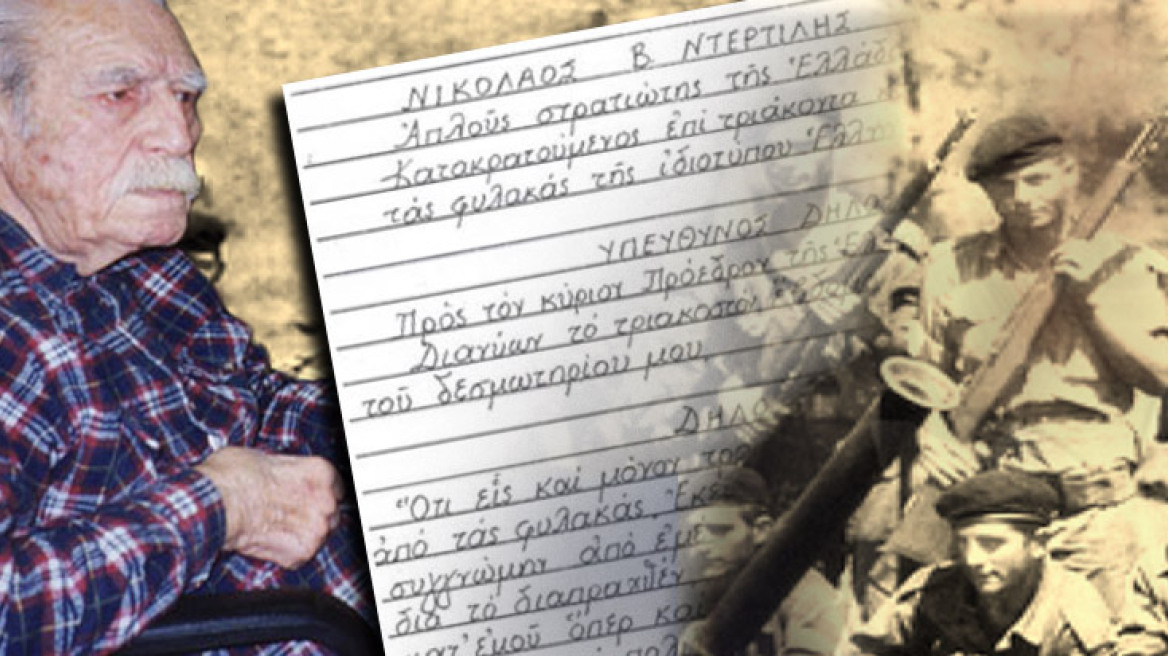 ΝΙΚΟΛΑΟΣ Β ΝΤΕΡΤΙΛΗΣ
Ἁπλοῦς στρατιώτης τῆς Ἑλλάδ
Κατακρατούμενος ἐπί τριάκοντα
τάς φυλακάς τῆς ἰδιοτύπου Ἑλλη
ΥΠΕΥΘΥΝΟΣ ΔΗΛΩ
Πρός τόν κύριον Πρόεδρον τῆς Ἑλ
Διανύων τό τριακοστόν
τοῦ δεσμωτηρίου μου,
ΔΗΛΩ
Ὅτι εἷς καί μόνον τρό
ἀπό τάς φυλακάς. Ἐκε
συγγνώμην ἀπό ἐμέ
διά τό διαπραχθέν
κατ᾽ ἐμοῦ ὅπερ καί